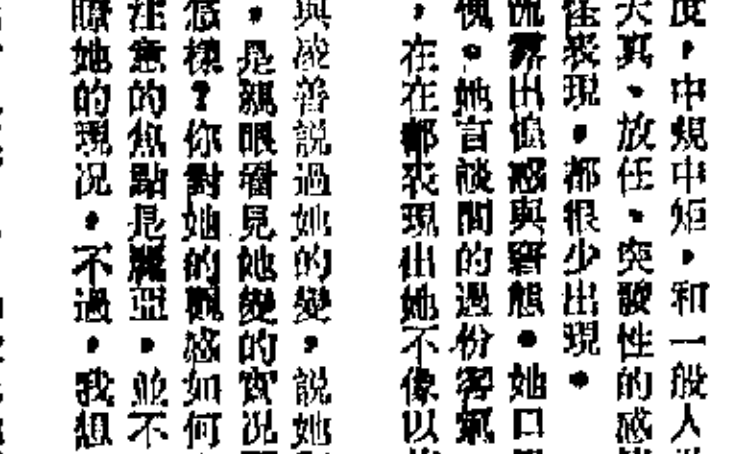 度，中規中矩，和一般人
天真、放任、突發性的感
怪表現，都很少出現。
流露出慽惑與窘態。她口
愧。她言談間的過份客氣
，在在都表現出她不像以
與凌普說過她的變，說她
，是親眼看見她變的實況
怎樣？你對她的觀感如何
注意的焦點是麗亞，並不
瞻她的現況，不過，我想